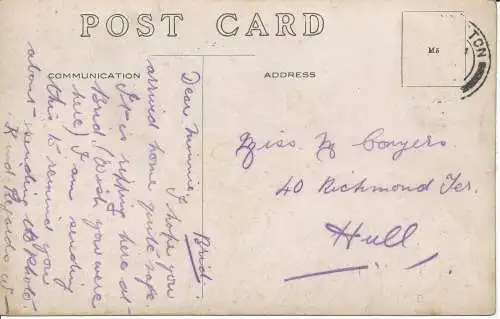 POST CARD
COMMUNICATION
ADDRESS
M5
TON
Brid.
Dear Minnie, I hope you
arrived home quite safe.
It is ripping here at
Brid. (Wish you were
here) I am sending
this to remind you
about sending the photo.
Kind Regards W
Miss M Conyers
40 Richmond Ter.
Hull.